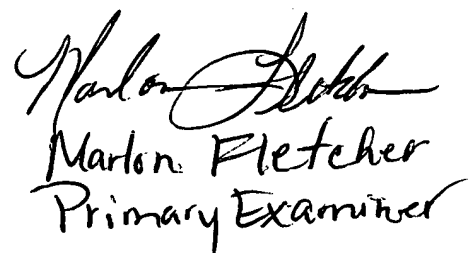 Marlon Fletcher
Marlon Fletcher
Primary Examiner